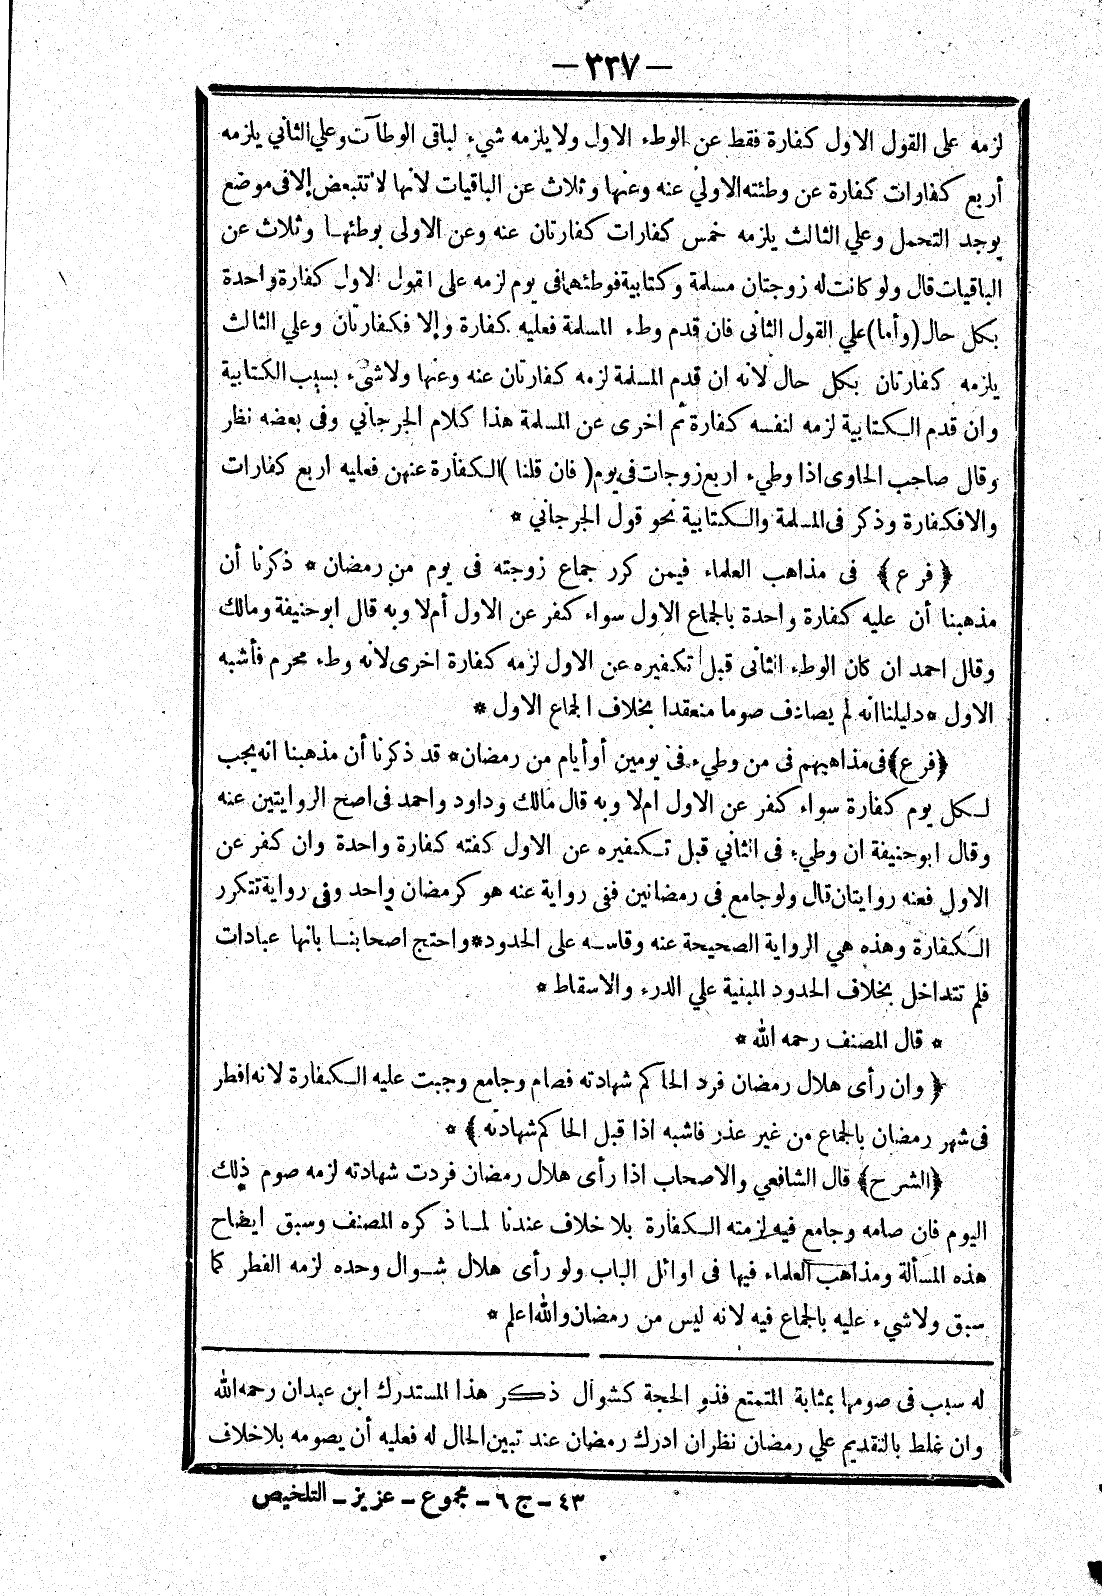 — ٣٣٧ —
لزمه على القول الاول كفارة فقط عن الوطء الاول ولا يلزمه شيء لباقى الوطآت وعلي الثاني يلزمه
أربع كفاوات كفارة عن وطئته الاولي عنه وعنها وثلاث عن الباقيات لأنها لا تتبعض إلا فى موضع
يوجد التحمل وعلي الثالث يلزمه خمس كفارات كفارتان عنه وعن الاولى بوطئها وثلاث عن
الباقيات قال ولو كانت له زوجتان مسلمة وكتابية فوطئهما فى يوم لزمه على القول الاول كفارة واحدة
بكل حال (وأما) علي القول الثانى فان قدم وطء المسلمة فعليه كفارة وإلا فكفارتان وعلي الثالث
يلزمه كفارتان بكل حال لانه ان قدم المسلمة لزمه كفارتان عنه وعنها ولا شيء بسبب الكتابية
وان قدم الكتابية لزمه لنفسه كفارة ثم اخرى عن المسلمة هذا كلام الجرجاني وفى بعضه نظر
وقال صاحب الحاوى اذا وطيء اربع زوجات فى يوم (فان قلنا) الكفارة عنهن فعليه اربع كفارات
والا فكفارة وذكر فى المسلمة والكتابية نحو قول الجرجاني *
﴿فرع﴾ فى مذاهب العلماء فيمن كرر جماع زوجته فى يوم من رمضان * ذكرنا أن
مذهبنا أن عليه كفارة واحدة بالجماع الاول سواء كفر عن الاول أم لا وبه قال ابو حنيفة ومالك
وقال احمد ان كان الوطء الثانى قبل تكفيره عن الاول لزمه كفارة اخرى لانه وطء محرم فأشبه
الاول * دليلنا انه لم يصادف صوما منعقدا بخلاف الجماع الاول *
﴿فرع﴾ فى مذاهبهم فى من وطيء فى يومين أو أيام من رمضان * قد ذكرنا أن مذهبنا انه يجب
لكل يوم كفارة سواء كفر عن الاول ام لا وبه قال مالك وداود واحمد فى اصح الروايتين عنه
وقال ابو حنيفة ان وطيء فى الثاني قبل تكفيره عن الاول كفته كفارة واحدة وان كفر عن
الاول فعنه روايتان قال ولو جامع فى رمضانين ففى رواية عنه هو كرمضان واحد وفى رواية تتكرر
الكفارة وهذه هي الرواية الصحيحة عنه وقاسه على الحدود * واحتج اصحابنا بانها عبادات
فلم تتداخل بخلاف الحدود المبنية علي الدرء والاسقاط *
* قال المصنف رحمه الله *
﴿وان رأى هلال رمضان فرد الحاكم شهادته فصام وجامع وجبت عليه الكفارة لانه افطر
فى شهر رمضان بالجماع من غير عذر فاشبه اذا قبل الحاكم شهادته﴾ *
﴿الشرح﴾ قال الشافعي والاصحاب اذا رأى هلال رمضان فردت شهادته لزمه صوم ذلك
اليوم فان صامه وجامع فيه لزمته الكفارة بلا خلاف عندنا لما ذكره المصنف وسبق ايضاح
هذه المسألة ومذاهب العلماء فيها فى اوائل الباب ولو رأى هلال شوال وحده لزمه الفطر كما
سبق ولا شيء عليه بالجماع فيه لانه ليس من رمضان والله اعلم *
له سبب فى صومها بمثابة المتمتع فذو الحجة كشوال ذكر هذا المستدرك ابن عبدان رحمه الله
وان غلط بالتقديم علي رمضان نظر ان ادرك رمضان عند تبين الحال له فعليه أن يصومه بلا خلاف
٤٣ - ج ٦ - مجموع - عزيز - التلخيص